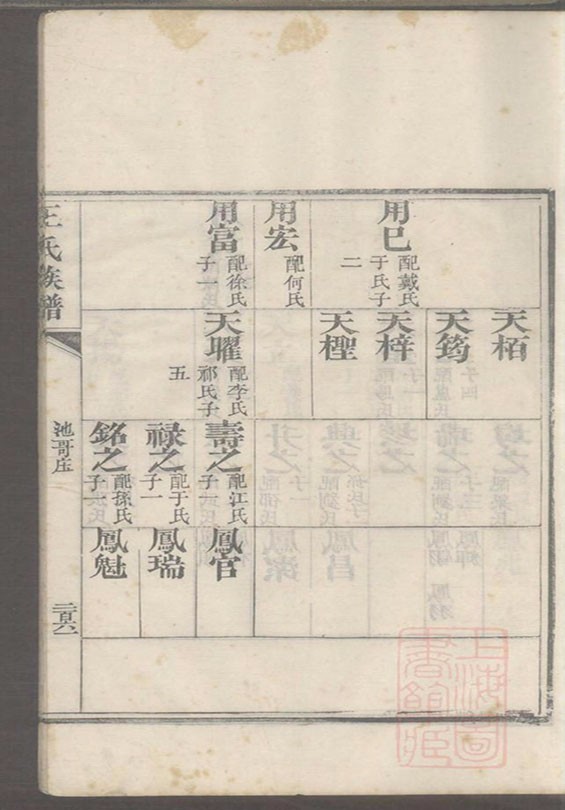 用巳
配戴氏
于氏子
二
用宏
配何氏
用富
配徐氏
子一
天栢
天筠
天梓
天檉
天曜
配李氏
祁氏子
五
壽之
配江氏
子一
禄之
配于氏
子一
銘之
配孫氏
子一
鳳官
鳳瑞
鳳魁
王氏族譜
池哥庄
上海圖書館藏